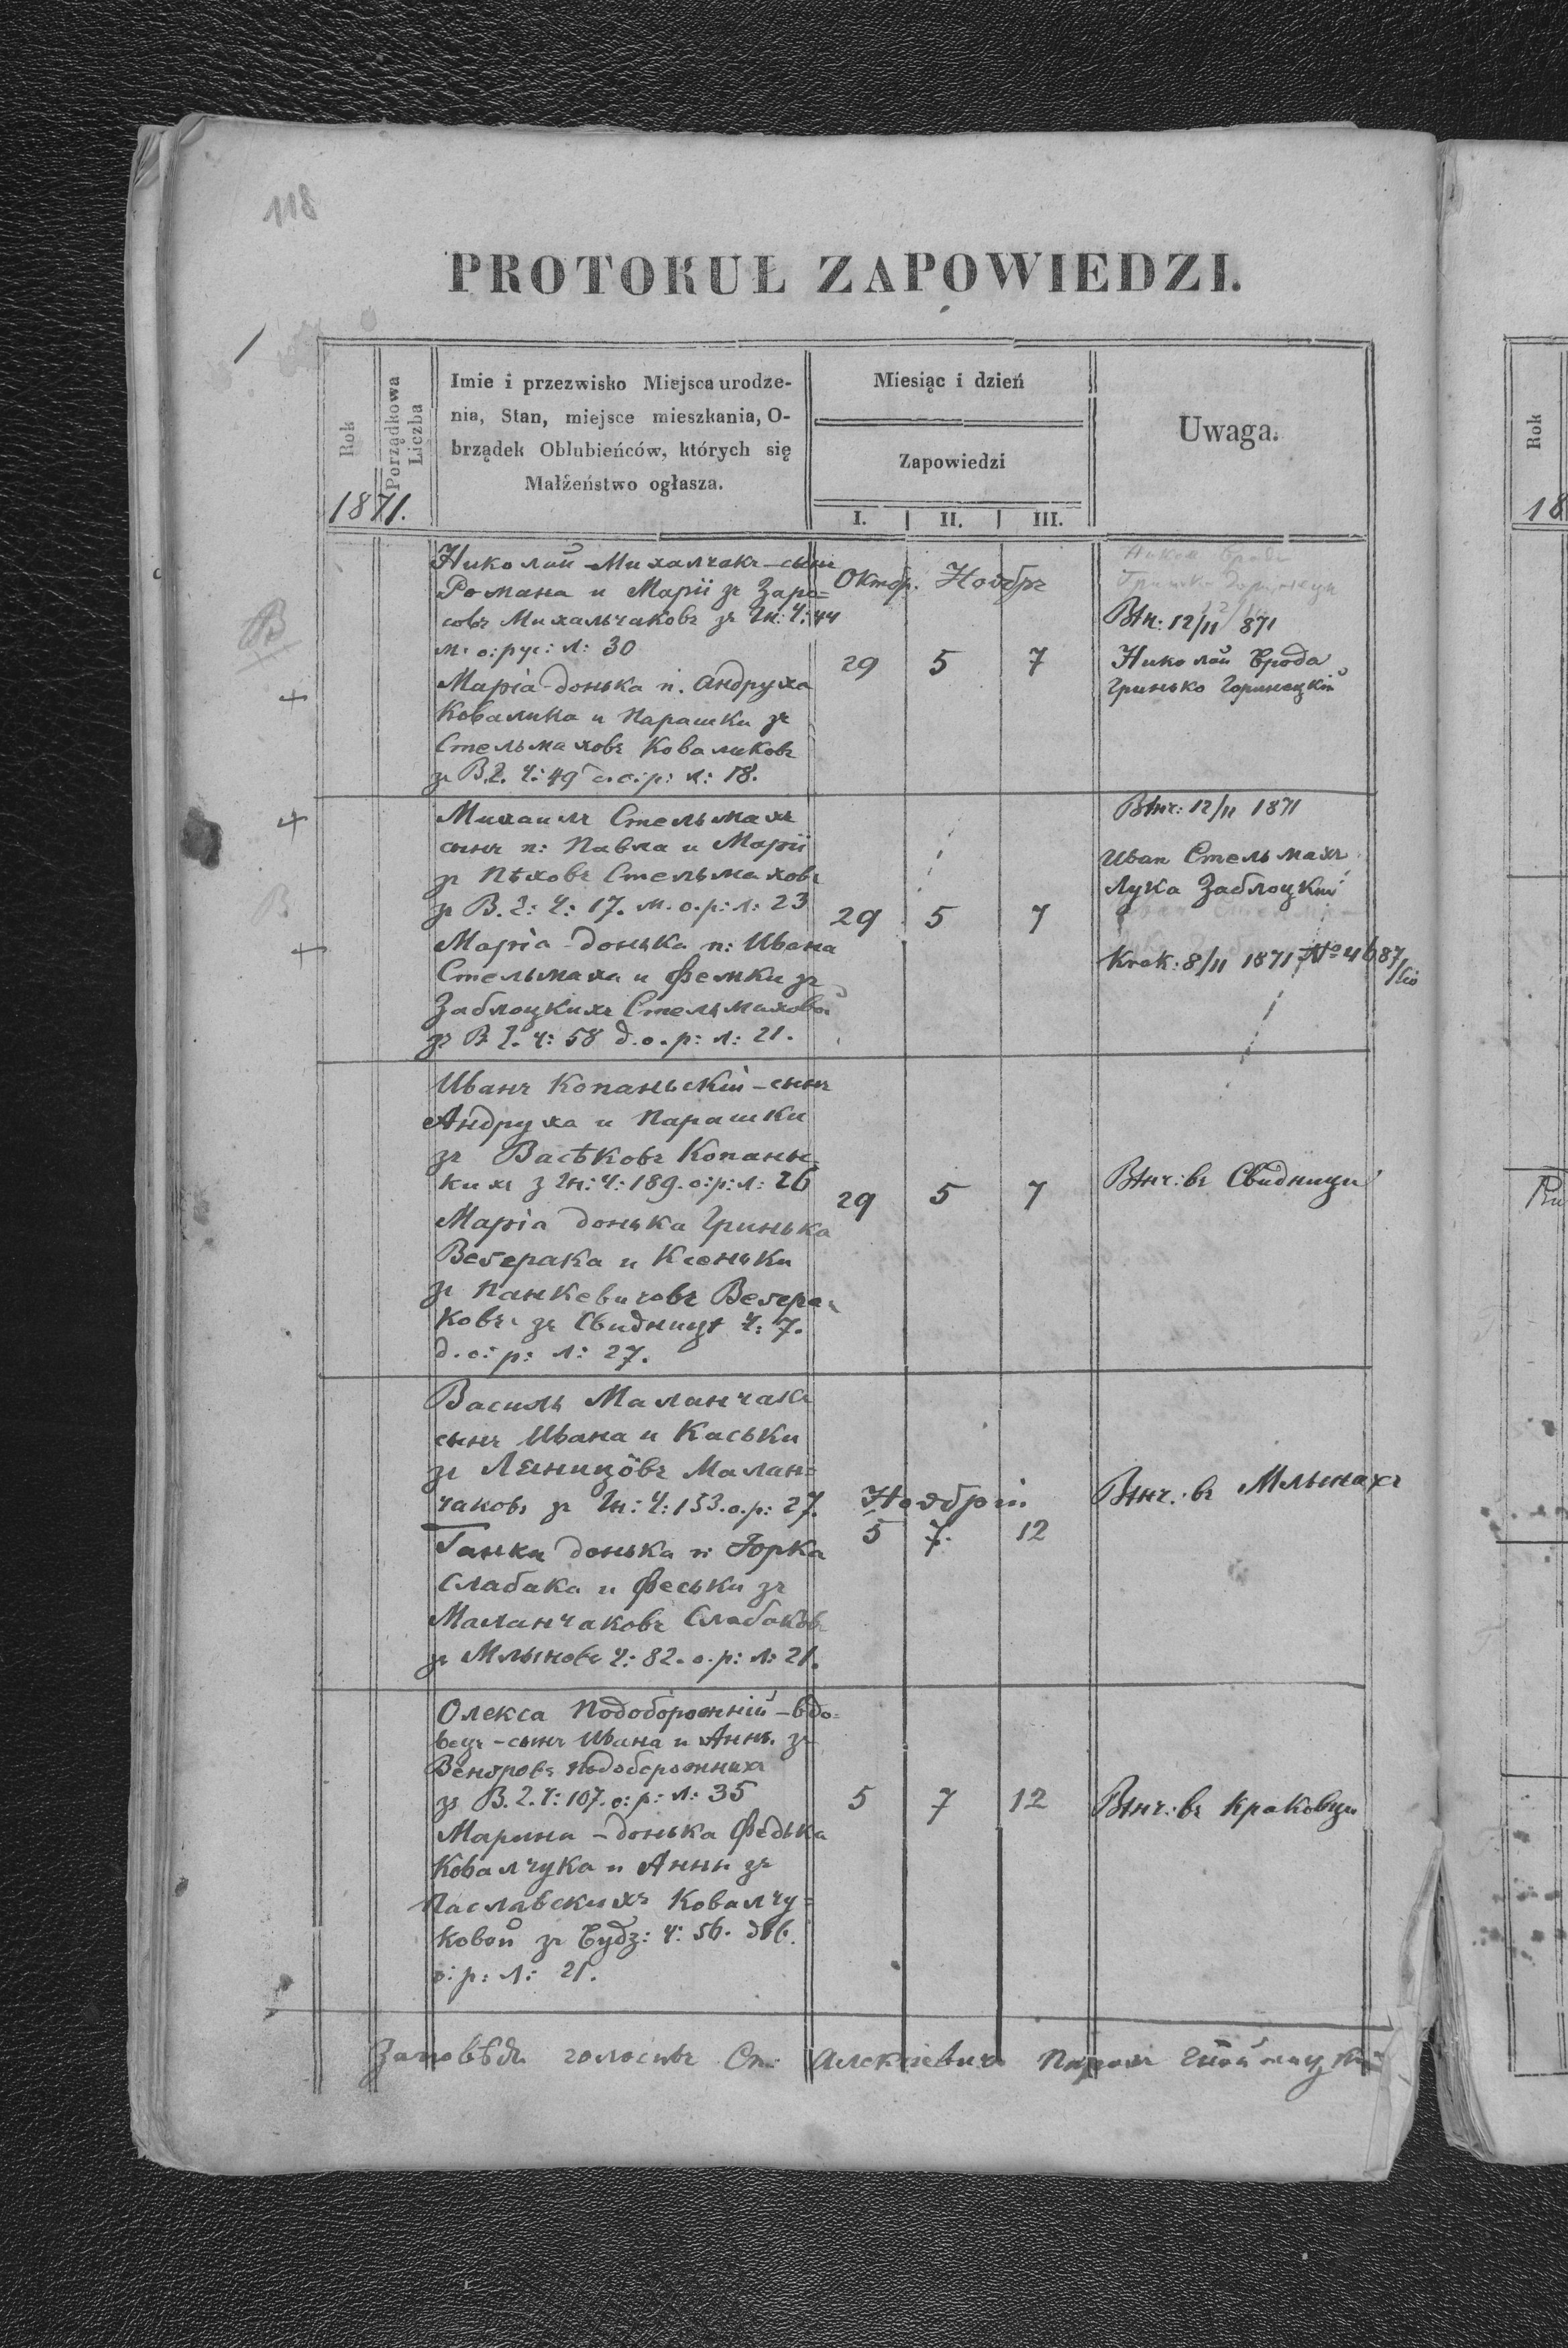 118
PROTOKUŁ ZAPOWIEDZI.
Rok
Porządkowa Liczba
Imie i przezwisko Miejsca urodze-
nia, Stan, miejsce mieszkania, O-
brządek Oblubieńców, których się
Małżeństwo ogłasza.
Miesiąc i dzień
Zapowiedzi
I. II. III.
Uwaga.
1871.
Николай Михалчакъ - сынъ
Романа и Маріи зъ
совъ Михальчаковъ зъ Гн: Ч: 44
м. о: рус: л: 30
Марія донька п. Андруха
Ковалика и Парашки зъ
Стельмаховъ Коваликовъ
зъ В.Г. Ч: 49 о: р: л: 18.
Октобр. Ноябръ
29 5 7
Внч: 12/11 871
Николай Брода
Гринько Горинецкій
Михаилъ Стельмахъ
сынъ п: Павла и Маріи
зъ Пѣховъ Стельмаховъ
зъ В. Г: Ч: 17. м. о. р: л: 23
Марія - донька п: Ивана
Стельмаха и Фемки зъ
Заблоцкихъ Стельмаховой
зъ В Г. ч: 58 д. о. р: л: 21.
29 5 7
Внч: 12/11 1871
Иван Стельмахъ
Лука Заблоцкій
Krak: 8/11 1871 No 4687
Иванъ Копаньскій - сынъ
Андруха и Парашки
зъ Васѣковъ Копань
кихъ з Гн: Ч: 189. о: р: л: 26
Марія донька Гринька
Веберака и Ксеньки
зъ Панкевичовъ Вебера
ковъ зъ Свидницѣ Ч: 7.
д. о: р: л: 27.
29 5 7
Внч: въ Свидници
Василь Маланчакъ
сынъ Ивана и Каськи
зъ Маланъ=
чаковъ зъ Гн: Ч: 153. о. р: 27.
Ганка донька п: Юрка
Слабака и Феськи зъ
Маланчаковъ Слабаковъ
зъ Млыновъ Ч: 82. о. р: л: 21.
Ноябрій
5 7. 12
Внч: въ Млынахъ
Олекса Подоборожній - вдо=
вецъ - сынъ Ивана и Анны зъ
Венгровъ Подоборожнихъ
зъ В. Г. Ч: 107. о: р: л: 35
Марина - донька Федька
Ковалчука и Анны зъ
Паславскихъ Ковалчу=
ковой зъ Будз: Ч: 56. дѣв.
о: р: л: 21.
5 7 12
Внч: въ Краковци
Заповѣди голосивъ Алексіевичъ Парохъ
Rok
18